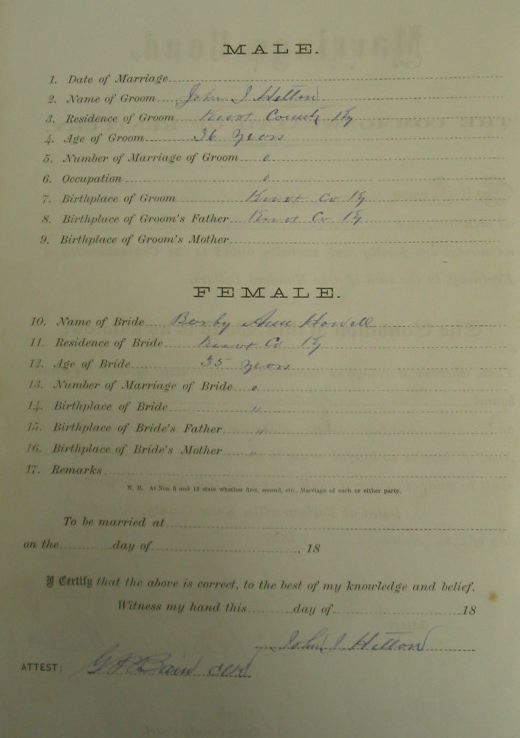 MALE.
1. Date of Marriage
2. Name of Groom John I Hilton
3. Residence of Groom Knox County Ky
4. Age of Groom 36 years
5. Number of Marriage of Groom o
6. Occupation o
7. Birthplace of Groom Knox Co Ky
8. Birthplace of Groom's Father Knox Co Ky
9. Birthplace of Groom's Mother
FEMALE.
10. Name of Bride Ann Howell
11. Residence of Bride Knox Co Ky
12. Age of Bride 35 years
13. Number of Marriage of Bride "
14. Birthplace of Bride "
15. Birthplace of Bride's Father "
16. Birthplace of Bride's Mother "
17. Remarks
N. B. At Nos. 5 and 13 state whether first, second, etc., Marriage of each or either party.
To be married at
on the day of , 18
I Certify that the above is correct, to the best of my knowledge and belief.
Witness my hand this day of 18
John I Hilton
ATTEST: